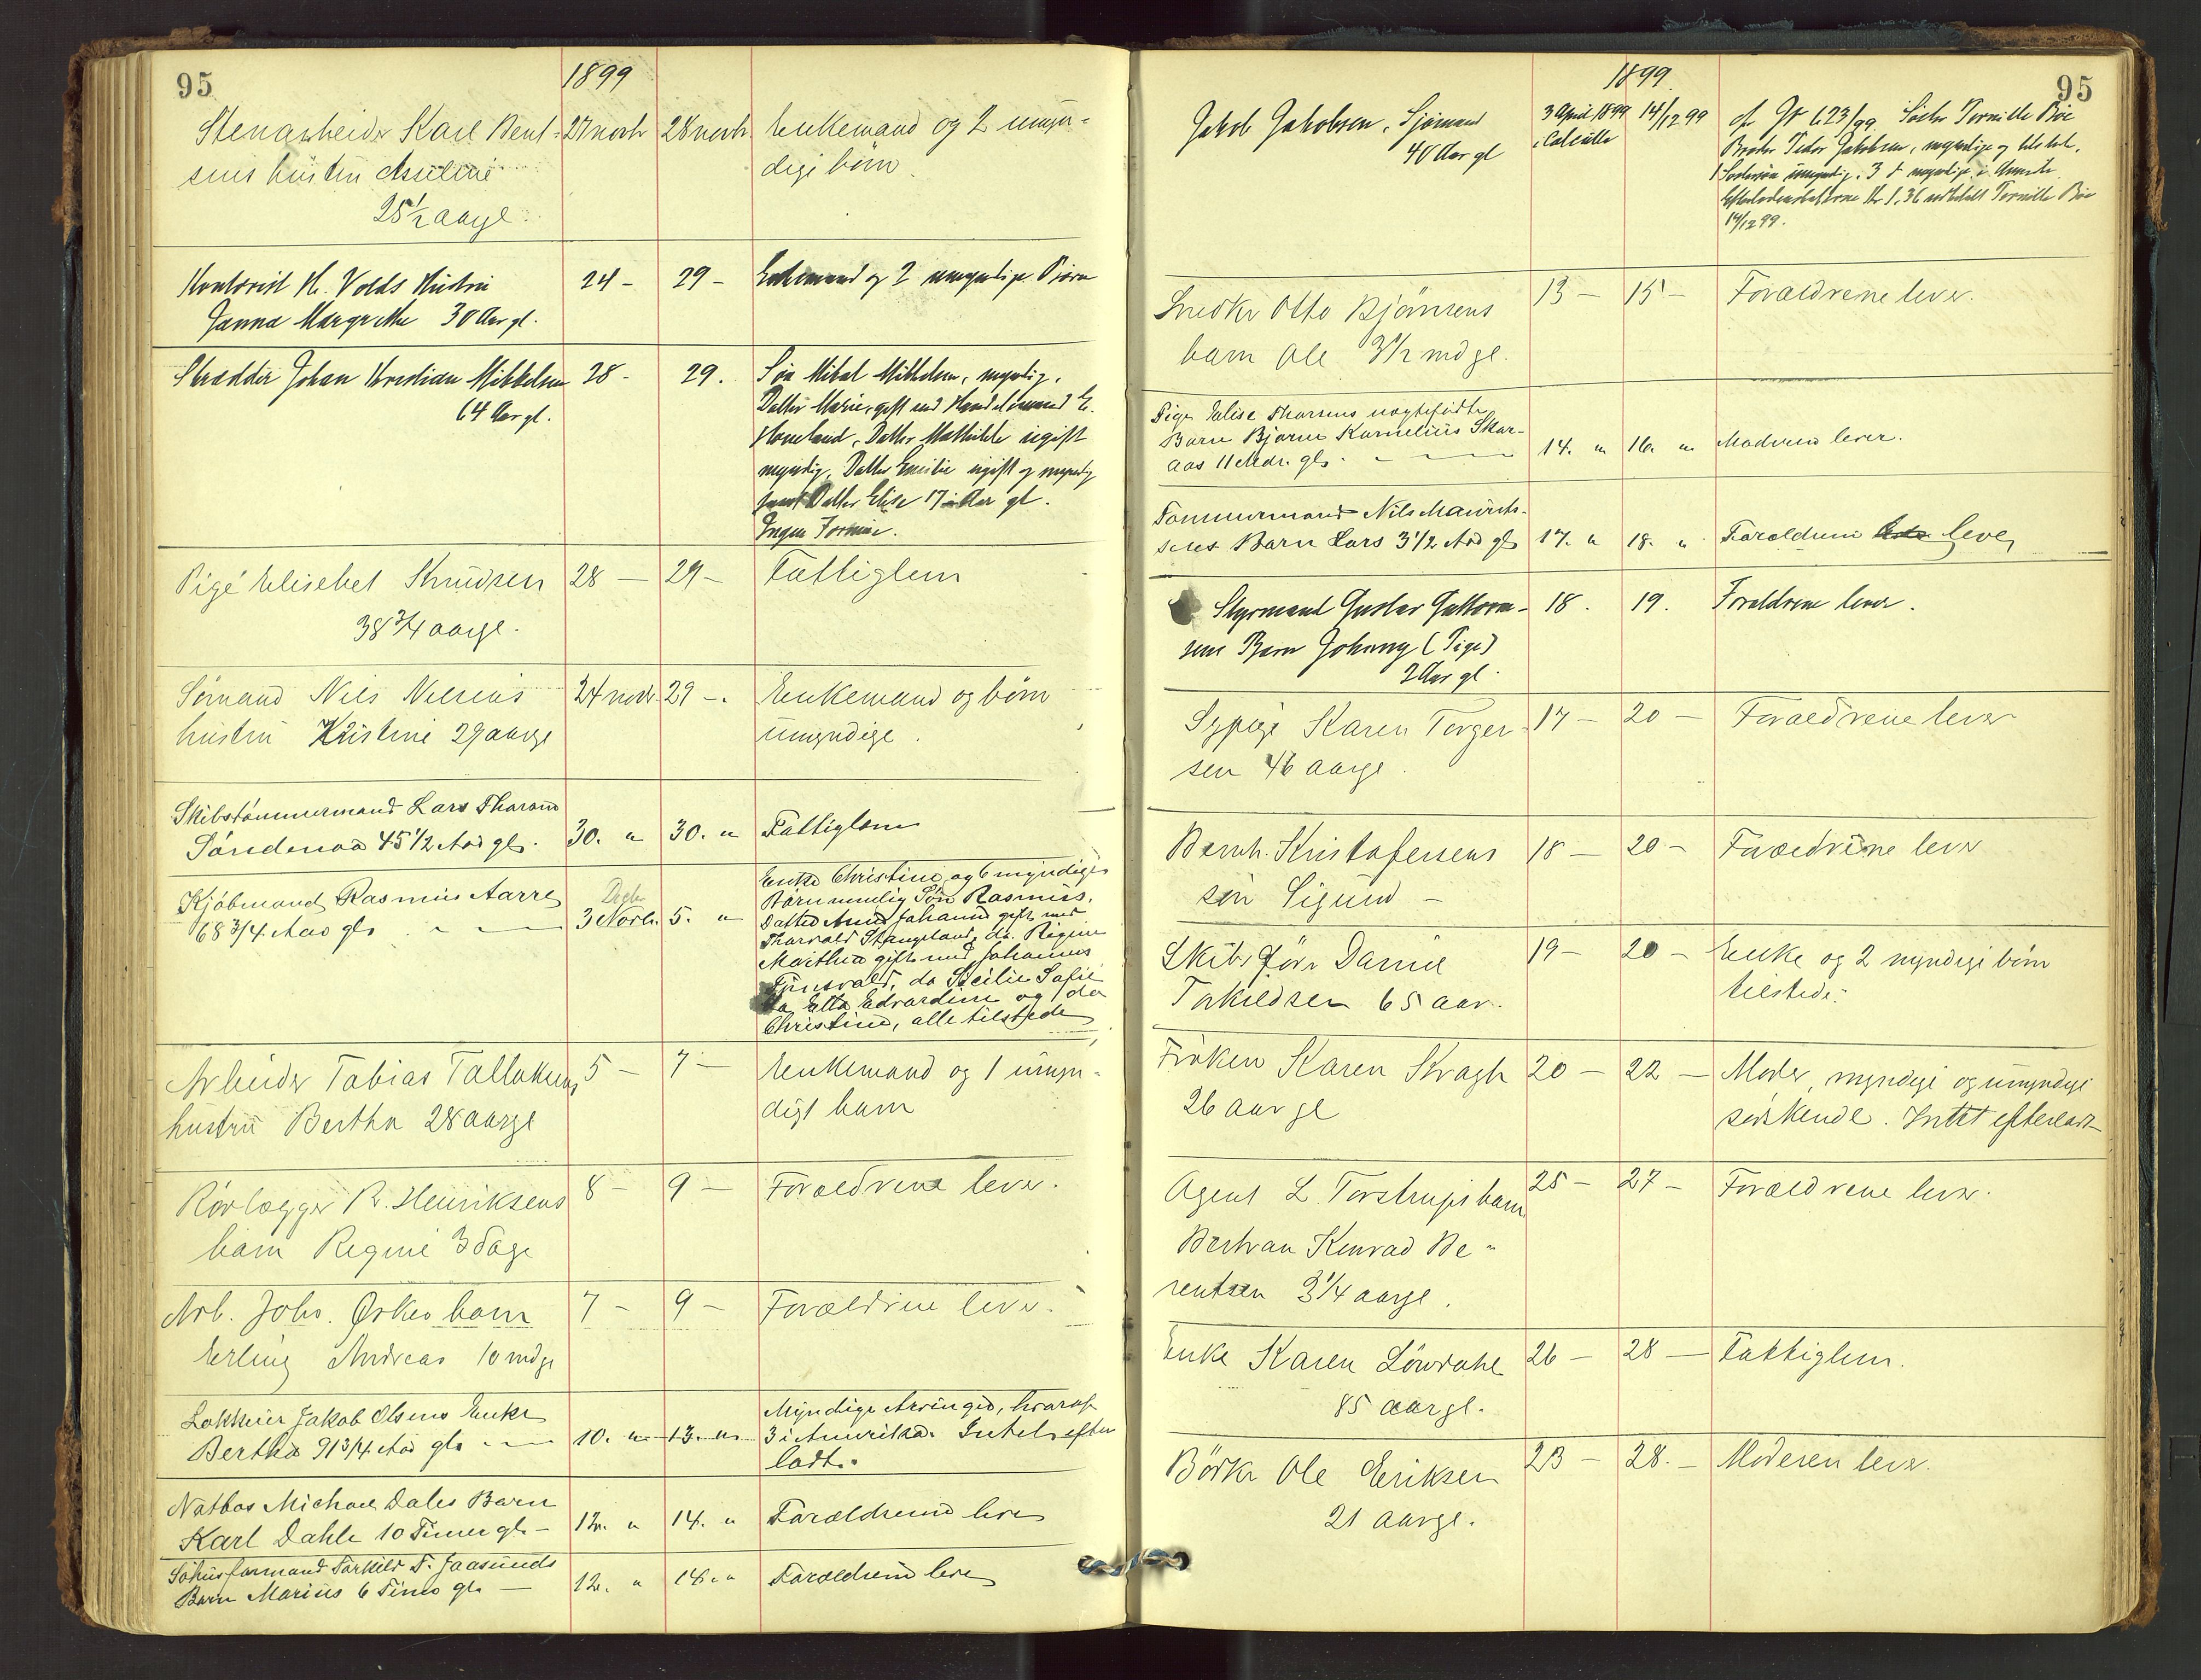 95
1899
Stenarbeider Karl Bent-
sens hustru Asseline
25 1/2 aargl.
27 novbr 28 novbr.
Enkemand og 2 umyn-
dige børn.
Kontorist H. Volds Hustru
Janna Margrethe 30 Aar gl.
24 - 29 -
Enkemand og 2 umyndige Børn
Skrædder Johan Kristian Mikkelsen
64 Aar gl.
28 - 29.
Søn Mikal Mikkelsen, myndig,
Datter Marie, gift med Handelsmand E.
Honeland, Datter Mathilde ugift
myndig, Datter Emilie ugift og myndig
samt Datter Elise 17 Aar gl.
Ingen Formue.
Pige Elisebet Knudsen
38 3/4 aargl.
28 - 29 -
Fattiglem
Sømand Nils Nilsens
hustru Kristine 29 aargl
24 novbr. 29 -.
Enkemand og børn
umyndige.
Skibstømmermand Lars Tharsen
Søndenaa 45 1/2 Aar gl.
30. " 30. "
Fattiglem
Kjøbmand Rasmus Aarre
68 3/4 Aar gl.
Decbr
3 Novbr. 5. "
Enke Christine og 6 myndige
Børn nemlig Søn Rasmus,
Datter Anne Johanne gift med
Tharvald Stangeland, do. Regine
Marthea gift med Johannes
do Secilie Sofie
da Etta Edvardine og do
Christine, alle tilstede
Arbeider Tobias Tallaksens
hustru Bertha 28 aargl
5 - 7 -
Enkemand og 1 umyn-
digt barn
Rørlægger R. Henriksens
barn Regine 3 dage
8 - 9 -
Forældrene lever.
Arb. Johs. Ørkes barn
Erling Andreas 10 mdgl
7 - 9 -
Forældrene lever.
Jakob Olsens Enke
Bertha 91 3/4 Aar gl.
10. " 13. "
Myndige Arvinger, hvoraf
3 i Amerika. Intet efter
ladt.
Michael Dales Barn
Karl Dahle 10 Timer gl. -
12. " 14. "
Forældrene lever
Torkild T. Jaasunds
Barn Marius 6 Timer gl. -
12. " 14. "
Forældrene lever
95
1899
Jakob Jakobsen, Sjømand
40 Aar gl
3 April 1899
i Calcutta
14/12 99
cfr Gp 623/99. Søster Pernille Bøe
Broder Peder Jakobsen, myndige og tilstede,
1 umyndig, 3 myndige i Amerika.
Kr 1,36 udbetalt Pernille Bøe
14/12 99.
Snedker Otto Bjørnsens
barn Ole 3 1/2 mdgl.
13 - 15 -
Forældrene lever.
Pige Elise Tharsens uægtefødte
Barn Bjarne Kornelius Skar-
aas 11 Mdr. gl.
14. " 16. "
Moderen lever.
Tømmermand Nils Maurits-
sens Barn Lars 3 1/2 Aar gl.
17. " 18. "
Forældrene leve
Styrmand Gustav Guttorm-
sens Barn Johanny (Pige)
2 Aar gl.
18. 19.
Forældrene lever.
Sypige Karen Torger-
sen 46 aargl.
17 - 20 -
Forældrene lever
Bernh. Kristofersens
søn Sigurd -
18 - 20 -
Forældrene lever
Skibsfører Daniel
Torkildsen 65 aar.
19 - 20 -
Enke og 2 myndige børn
tilstede.
Frøken Karen Kragh
26 aar gl
20 - 22 -
Moder, myndige og umyndige
søskende. Intet efterladt
Agent L. Torstrups barn
Bertran Konrad Be-
rentsen 3 1/4 aargl.
25 - 27 -
Forældrene lever.
Enke Karen Løvdahl
85 aargl.
26 - 28 -
Fattiglem.
Bødker Ole Eriksen
21 aargl.
23 - 28. -
Moderen lever.